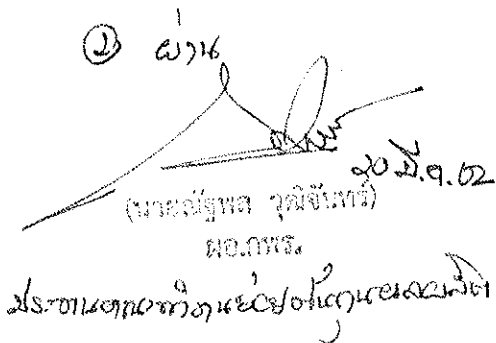 ② ผ่าน
20 มี.ค. 62
(นายณัฐพล วุฒิจันทร์)
ผอ.กพร.
ประธานคณะทำงานย่อย